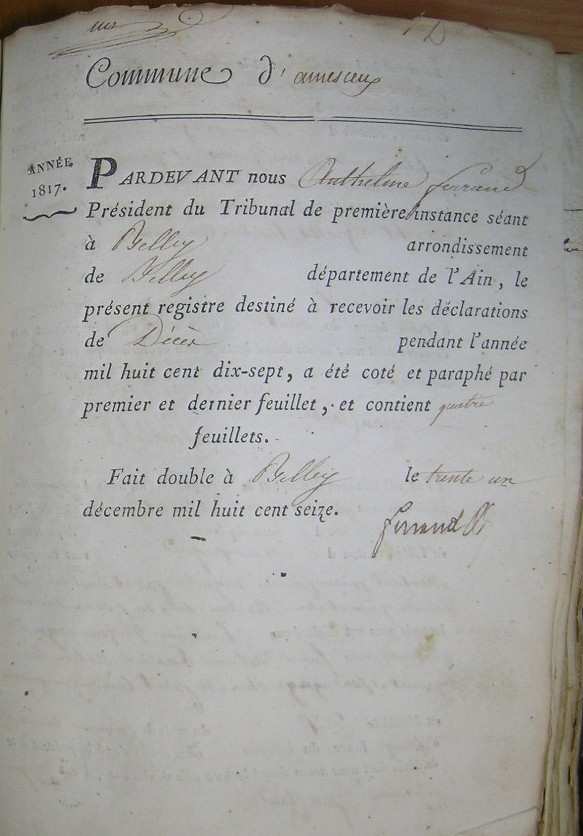 Commune d'ameseeux
ANNÉE
1817.
PARDEVANT nous Anthelme ferrand
Président du Tribunal de première instance séant
à Belley arrondissement
de Belley département de l'Ain, le
présent registre destiné à recevoir les déclarations
de Décès pendant l'année
mil huit cent dix-sept, a été coté et paraphé par
premier et dernier feuillet, et contient quatre
feuillets.
Fait double à Belley le trente un
décembre mil huit cent seize.
ferrand